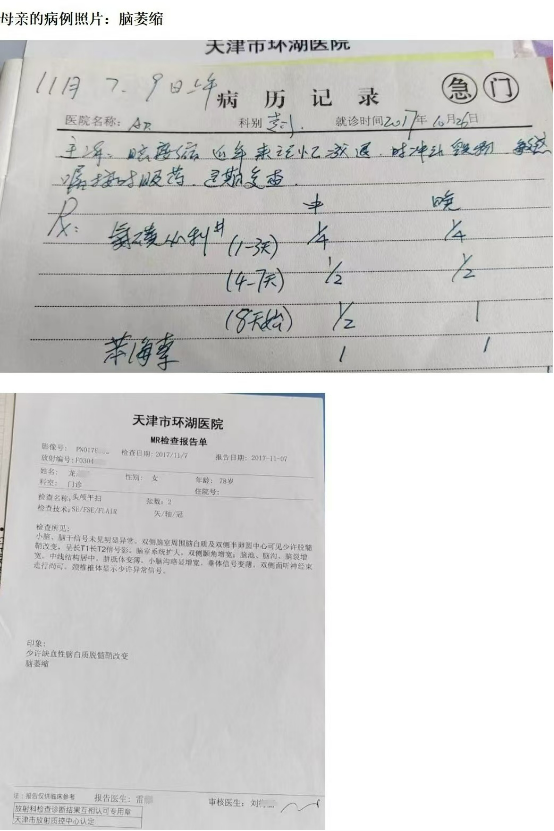 母亲的病例照片：脑萎缩
天津市环湖医院
11月7.9日上午
病 历 记 录
急 门
医院名称：
科别
就诊时间2017年10月26日
主诉：
近年来记忆减退
嘱按时服药，定期复查.
中 晚
氨磺必利# (1-3天) 1/4 1/4
(4-7天) 1/2 1/2
(8天始) 1/2 1
苯海索 1 1
天津市环湖医院
MR检查报告单
影像号： PN0170 检查日期：2017/11/7 报告日期：2017-11-07
放射编号：F0304
姓名： 龙 性别： 女 年龄： 78岁
科室： 门诊 住院号：
检查名称：头颅平扫 张数：2
检查技术：SE/FSE/FLAIR 矢/轴/冠
检查所见：
小脑、脑干信号未见明显异常。双侧脑室周围脑白质及双侧半卵圆中心可见少许脱髓
鞘改变，呈长T1长T2信号影。脑室系统扩大，双侧颞角增宽；脑池、脑沟、脑裂增
宽。中线结构居中。胼胝体变薄。小脑沟略显增宽。垂体信号变薄。双侧面听神经束
走行尚可。颈椎椎体显示少许异常信号。
印象：
少许缺血性脑白质脱髓鞘改变
脑萎缩
注：报告仅供临床参考 报告医生：雷 审核医生：刘
放射科检查诊断结果互相认可专用章
天津市放射质控中心认定